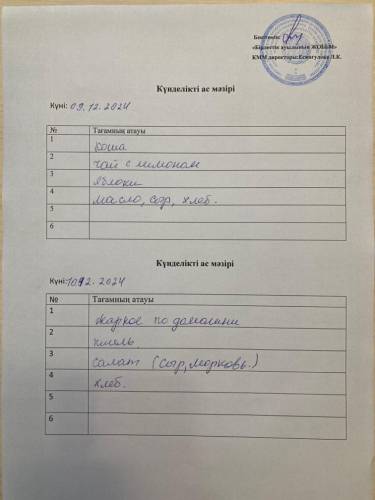 Бекітемін:
«Бірлестік ауылының ЖОББМ»
КММ директоры:Есмагулова Л.К.
Күнделікті ас мәзірі
Күні: 09.12.2024
№ Тағамның атауы
1 Каша
2 чай с лимоном
3 яблоки
4 масло, сыр, хлеб.
5
6
Күнделікті ас мәзірі
Күні:10.12.2024
№ Тағамның атауы
1 жаркое по домашни
2 кисель
3 салат (сыр, морковь.)
4 хлеб.
5
6